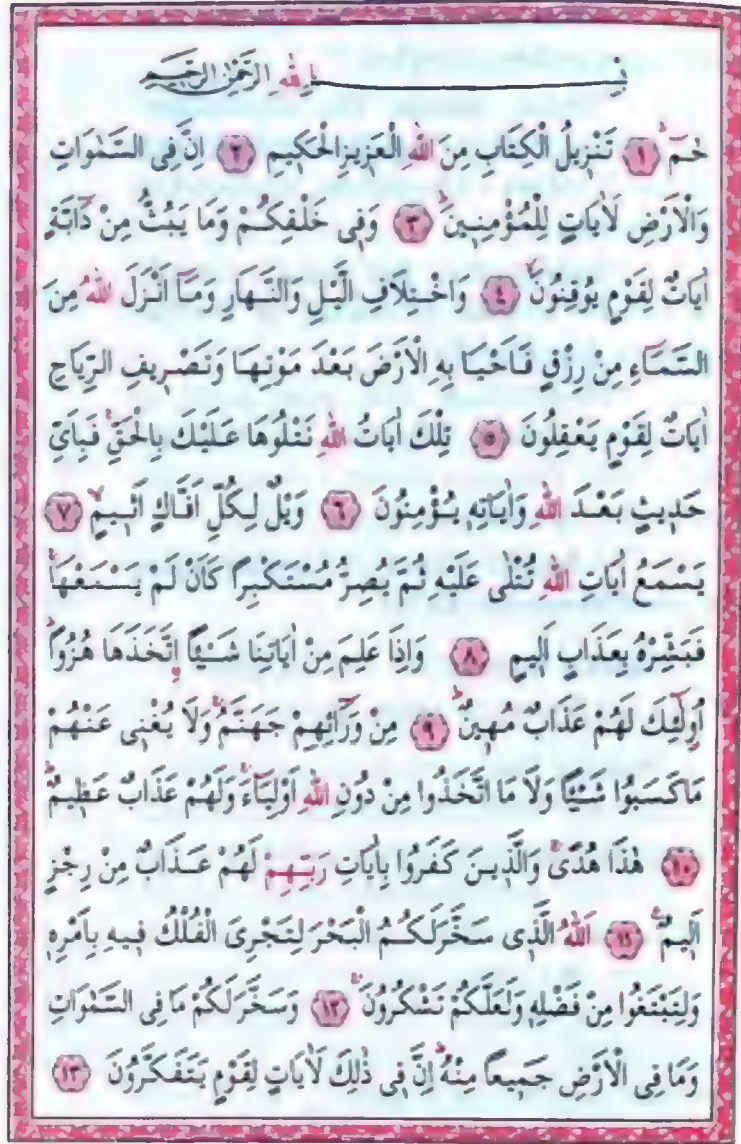 بِسْمِ اللهِ الرَّحْمٰنِ الرَّحِيمِ
حٰمٓ ﴿١﴾ تَنْزِيلُ الْكِتَابِ مِنَ اللهِ الْعَزِيزِ الْحَكِيمِ ﴿٢﴾ اِنَّ فِى السَّمٰوَاتِ
وَالْاَرْضِ لَاٰيَاتٍ لِلْمُؤْمِنِينَ ﴿٣﴾ وَفِى خَلْقِكُمْ وَمَا يَبُثُّ مِنْ دَٓابَّةٍ
اٰيَاتٌ لِقَوْمٍ يُوقِنُونَ ﴿٤﴾ وَاخْتِلَافِ الَّيْلِ وَالنَّهَارِ وَمَٓا اَنْزَلَ اللهُ مِنَ
السَّمَٓاءِ مِنْ رِزْقٍ فَاَحْيَا بِهِ الْاَرْضَ بَعْدَ مَوْتِهَا وَتَصْرِيفِ الرِّيَاحِ
اٰيَاتٌ لِقَوْمٍ يَعْقِلُونَ ﴿٥﴾ تِلْكَ اٰيَاتُ اللهِ نَتْلُوهَا عَلَيْكَ بِالْحَقِّ فَبِاَىِّ
حَدِيثٍ بَعْدَ اللهِ وَاٰيَاتِهِ يُؤْمِنُونَ ﴿٦﴾ وَيْلٌ لِكُلِّ اَفَّاكٍ اَثِيمٍ ﴿٧﴾
يَسْمَعُ اٰيَاتِ اللهِ تُتْلٰى عَلَيْهِ ثُمَّ يُصِرُّ مُسْتَكْبِرًا كَاَنْ لَمْ يَسْمَعْهَا
فَبَشِّرْهُ بِعَذَابٍ اَلِيمٍ ﴿٨﴾ وَاِذَا عَلِمَ مِنْ اٰيَاتِنَا شَيْـًٔا اتَّخَذَهَا هُزُوًا
اُولٰٓئِكَ لَهُمْ عَذَابٌ مُهِينٌ ﴿٩﴾ مِنْ وَرَٓائِهِمْ جَهَنَّمُ وَلَا يُغْنِى عَنْهُمْ
مَاكَسَبُوا شَيْـًٔا وَلَا مَا اتَّخَذُوا مِنْ دُونِ اللهِ اَوْلِيَٓاءَ وَلَهُمْ عَذَابٌ عَظِيمٌ
﴿١٠﴾ هٰذَا هُدًى وَالَّذِينَ كَفَرُوا بِاٰيَاتِ رَبِّهِمْ لَهُمْ عَذَابٌ مِنْ رِجْزٍ
اَلِيمٌ ﴿١١﴾ اَللهُ الَّذِى سَخَّرَ لَكُمُ الْبَحْرَ لِتَجْرِىَ الْفُلْكُ فِيهِ بِاَمْرِهِ
وَلِتَبْتَغُوا مِنْ فَضْلِهِ وَلَعَلَّكُمْ تَشْكُرُونَ ﴿١٢﴾ وَسَخَّرَ لَكُمْ مَا فِى السَّمٰوَاتِ
وَمَا فِى الْاَرْضِ جَمِيعًا مِنْهُ اِنَّ فِى ذٰلِكَ لَاٰيَاتٍ لِقَوْمٍ يَتَفَكَّرُونَ ﴿١٣﴾